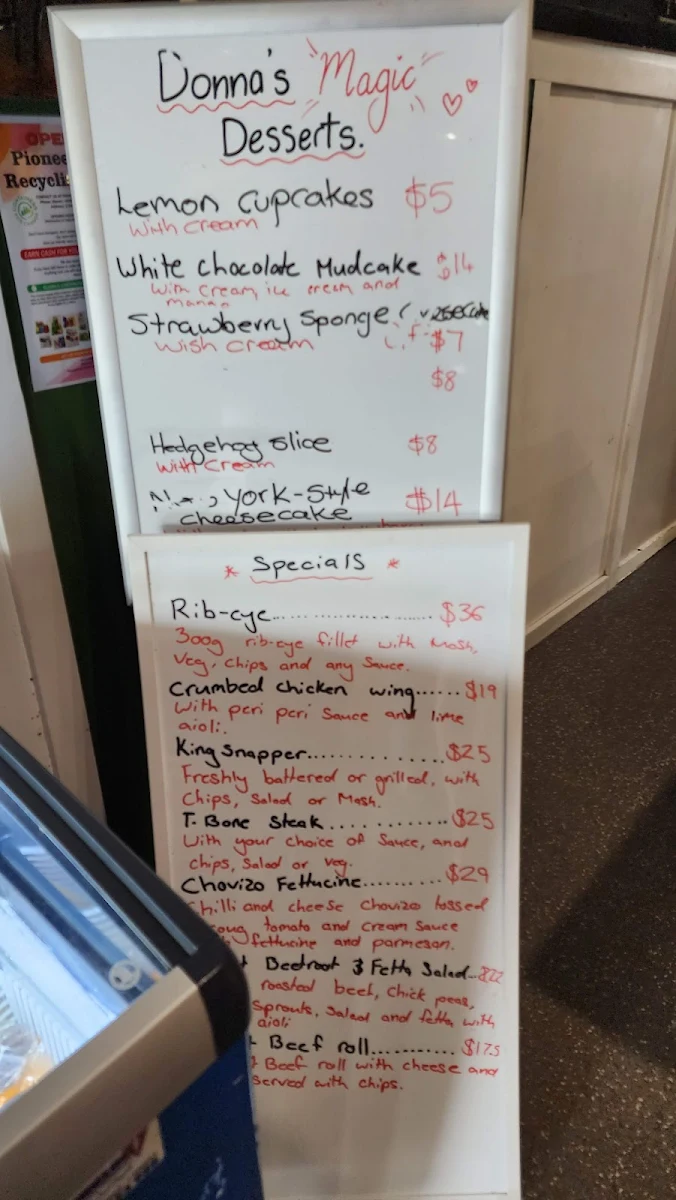 Donna's "Magic"
Desserts.
Lemon cupcakes $5
With cream
White chocolate Mudcake $14
With cream, ice cream and
mango
Strawberry Sponge
Wish cream $7
$8
Hedgehog slice $8
With cream
York-Style $14
cheesecake
* Specials *
Rib-eye.................... $36
300g rib-eye fillet with Mash,
Veg, chips and any Sauce.
Crumbed chicken wing......$19
With peri peri Sauce and lime
aioli.
King Snapper............$25
Freshly battered or grilled, with
Chips, Salad or Mash.
T-Bone Steak............$25
With your choice of Sauce, and
chips, Salad or Veg.
Chorizo Fettucine..........$29
Chilli and cheese Chorizo tossed
tomato and cream Sauce
fettucine and parmesan.
Beetroot & Fetta Salad...$22
roasted beet, Chick peas,
Sprouts, Salad and fetta with
aioli
Beef roll...........$17.5
Beef roll with cheese and
served with chips.
OPE
Pionee
Recycli
EARN CASH FOR YO